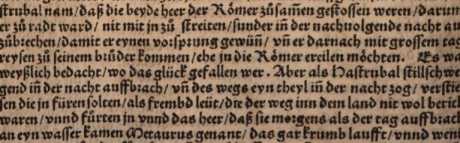 strubal nam/ daß die beyde heer der Römer zůsamen gestossen weren/ darum
er zů radt ward/ nit mit jn zů streiten/ sunder in der nachuolgende nacht au
zůbrechen/ damit er eynen vorsprung gewünn̄/ vn̄ er darnach mit grossem tag
reysen zů seinem brůder kommen/ ehe jn die Römer ereilen möchten. Es wa
weyßlich bedacht/ wo das glück gefallen wer. Aber als Hastrubal stillschwe
gend in̄ der nacht auffbrach/ vn̄ des wegs eyn theyl in̄ der nacht zog/ verstie
sen die jn füren solten/ als frembd leüt/ die der weg inn dem land nit wol bericht
waren/ vnnd fürten jn vnnd das heer/ daß sie morgens als der tag auffbrach
an eyn wasser kamen Metaurus genant/ das gar krumb laufft/ vnnd weni